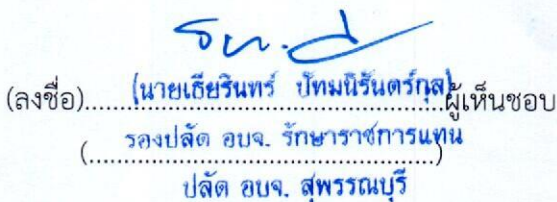 (ลงชื่อ)....(นายเธียรินทร์ ปัทมนิรันดร์กุล)....ผู้เห็นชอบ
(....รองปลัด อบจ. รักษาราชการแทน....)
ปลัด อบจ. สุพรรณบุรี